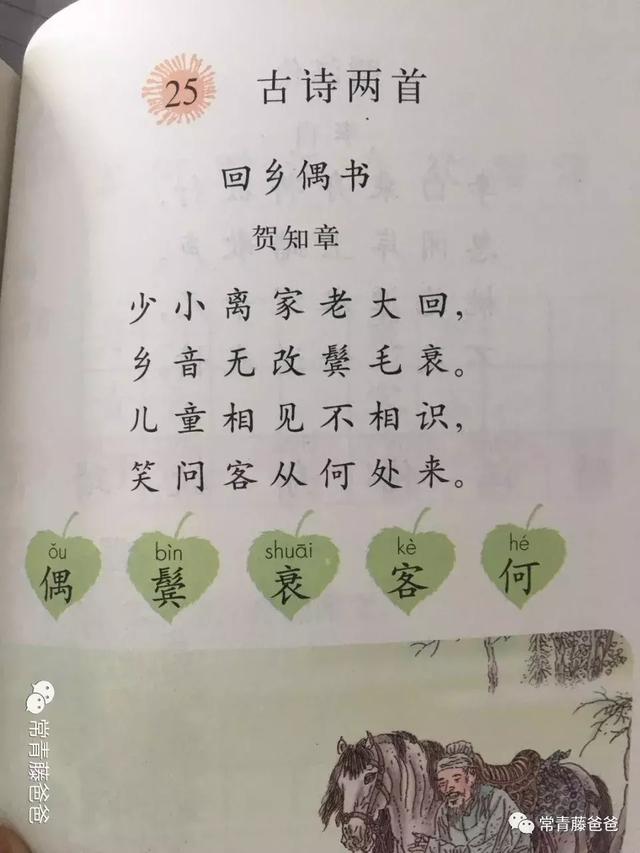 25 古诗两首
回乡偶书
贺知章
少小离家老大回，
乡音无改鬓毛衰。
儿童相见不相识，
笑问客从何处来。
ǒu bìn shuāi kè hé
偶 鬓 衰 客 何
常青藤爸爸
常青藤爸爸